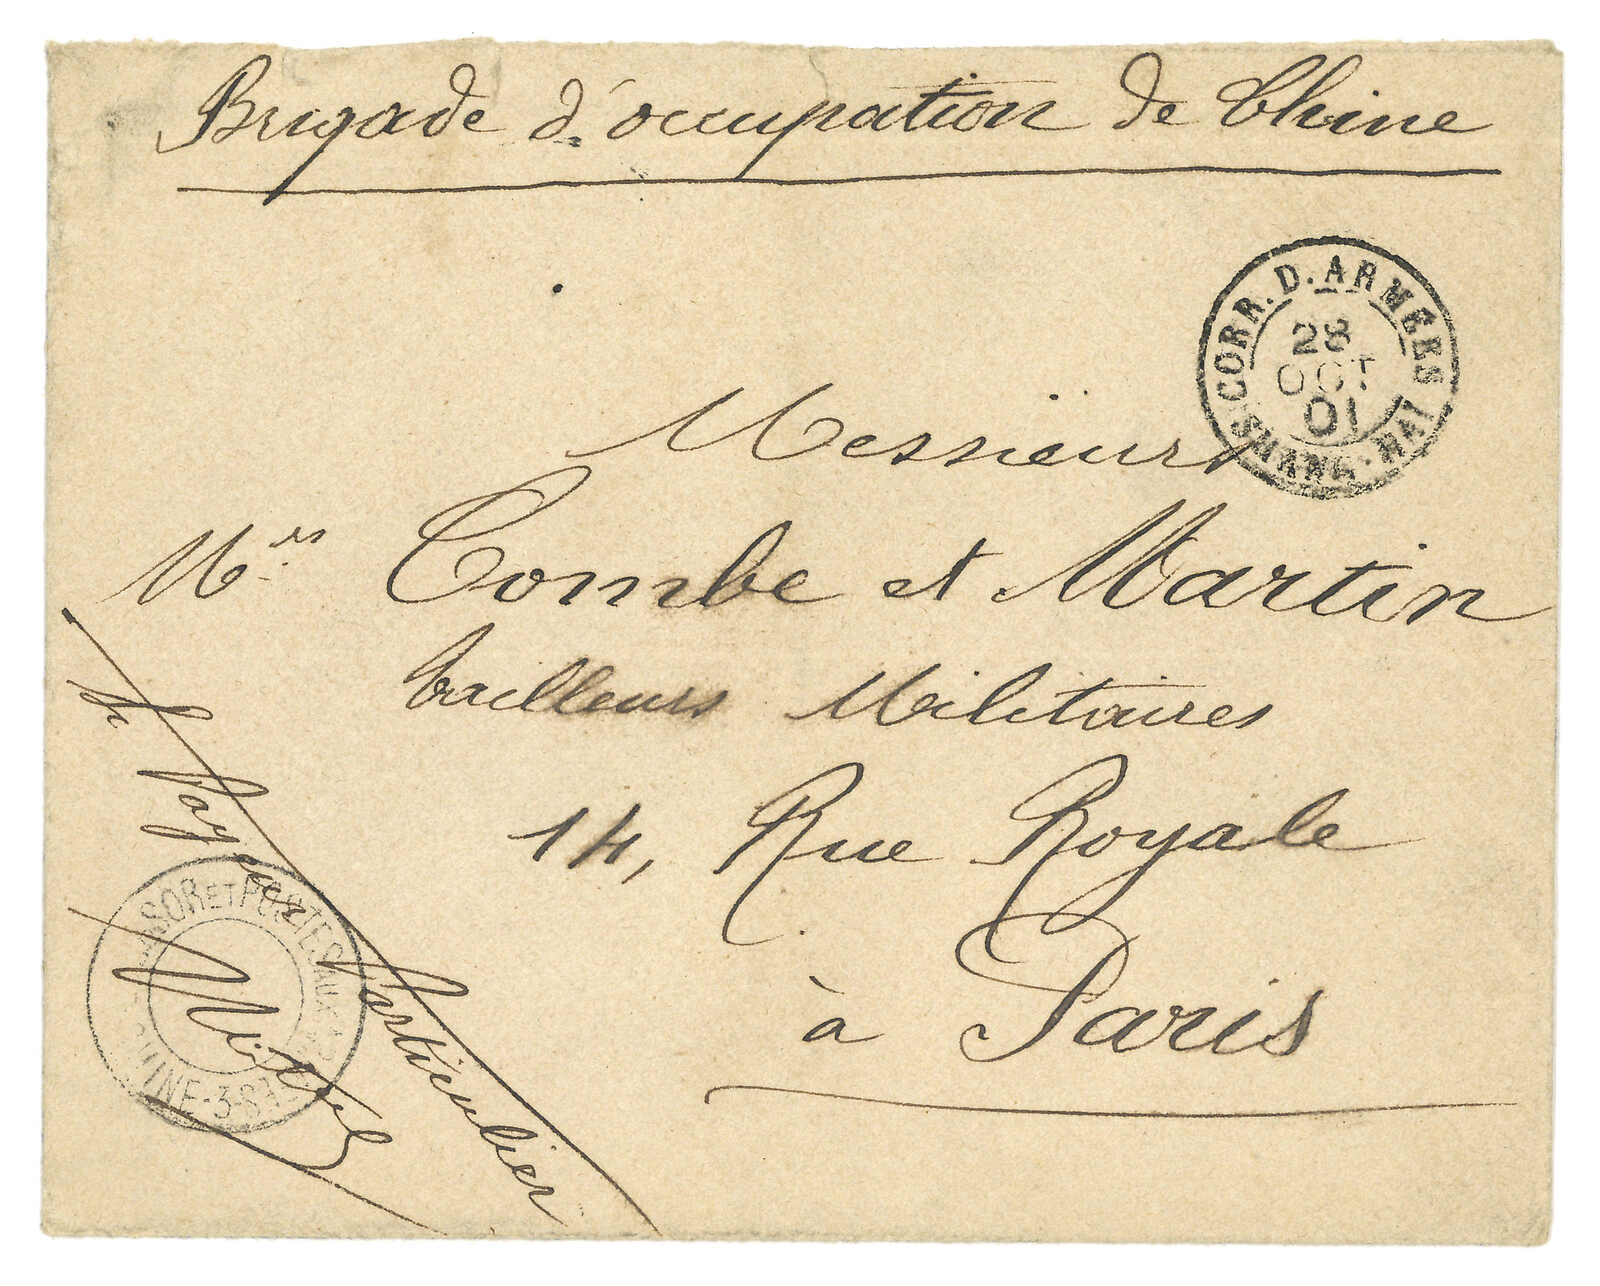 Brigade d'occupation de Chine
CORR. D. ARMEES
SHANG-HAI
28
OCT
01
Messieurs
Mrs Combe et Martin
tailleurs Militaires
14, Rue Royale
à Paris
Le Payeur Particulier
SOR ET POSTES AUX
CHINE-3-S